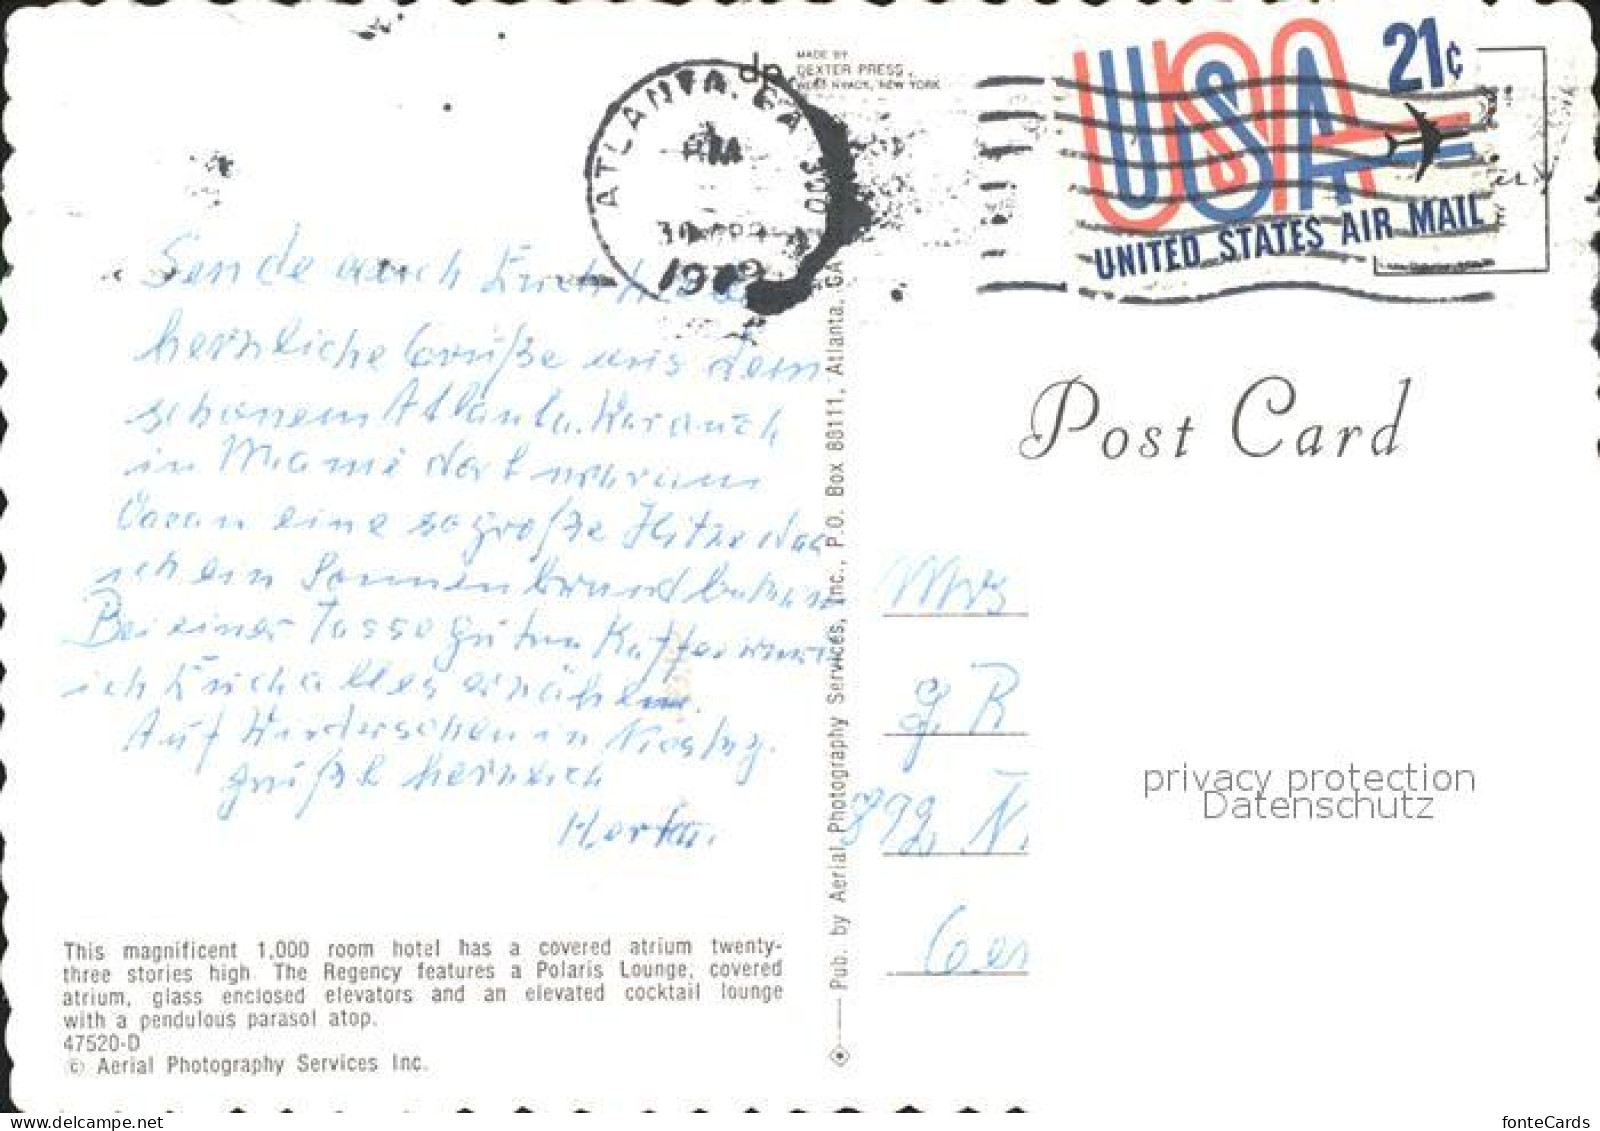 MADE BY
dp DEXTER PRESS
WEST NYACK, NEW YORK
ATLANTA, GA
PM
USA
21¢
UNITED STATES AIR MAIL
Post Card
Sende auch Euch
herzliche Grüße aus dem
schönem Atlanta. War auch
in Miami dort
eine so große Hitze das
ich ein Sonnenbrand
Bei einer Tasse guten Kaffee
ich Euch alles erzählen.
Auf Wiedersehen in
grüßt herzlich
Herta.
Mrs
G R
N
Ger
Pub. by Aerial Photography Services, Inc., P.O. Box 88111, Atlanta, GA
This magnificent 1,000 room hotel has a covered atrium twenty-
three stories high. The Regency features a Polaris Lounge, covered
atrium, glass enclosed elevators and an elevated cocktail lounge
with a pendulous parasol atop.
47520-D
© Aerial Photography Services Inc.
privacy protection
Datenschutz
www.delcampe.net
fonteCards